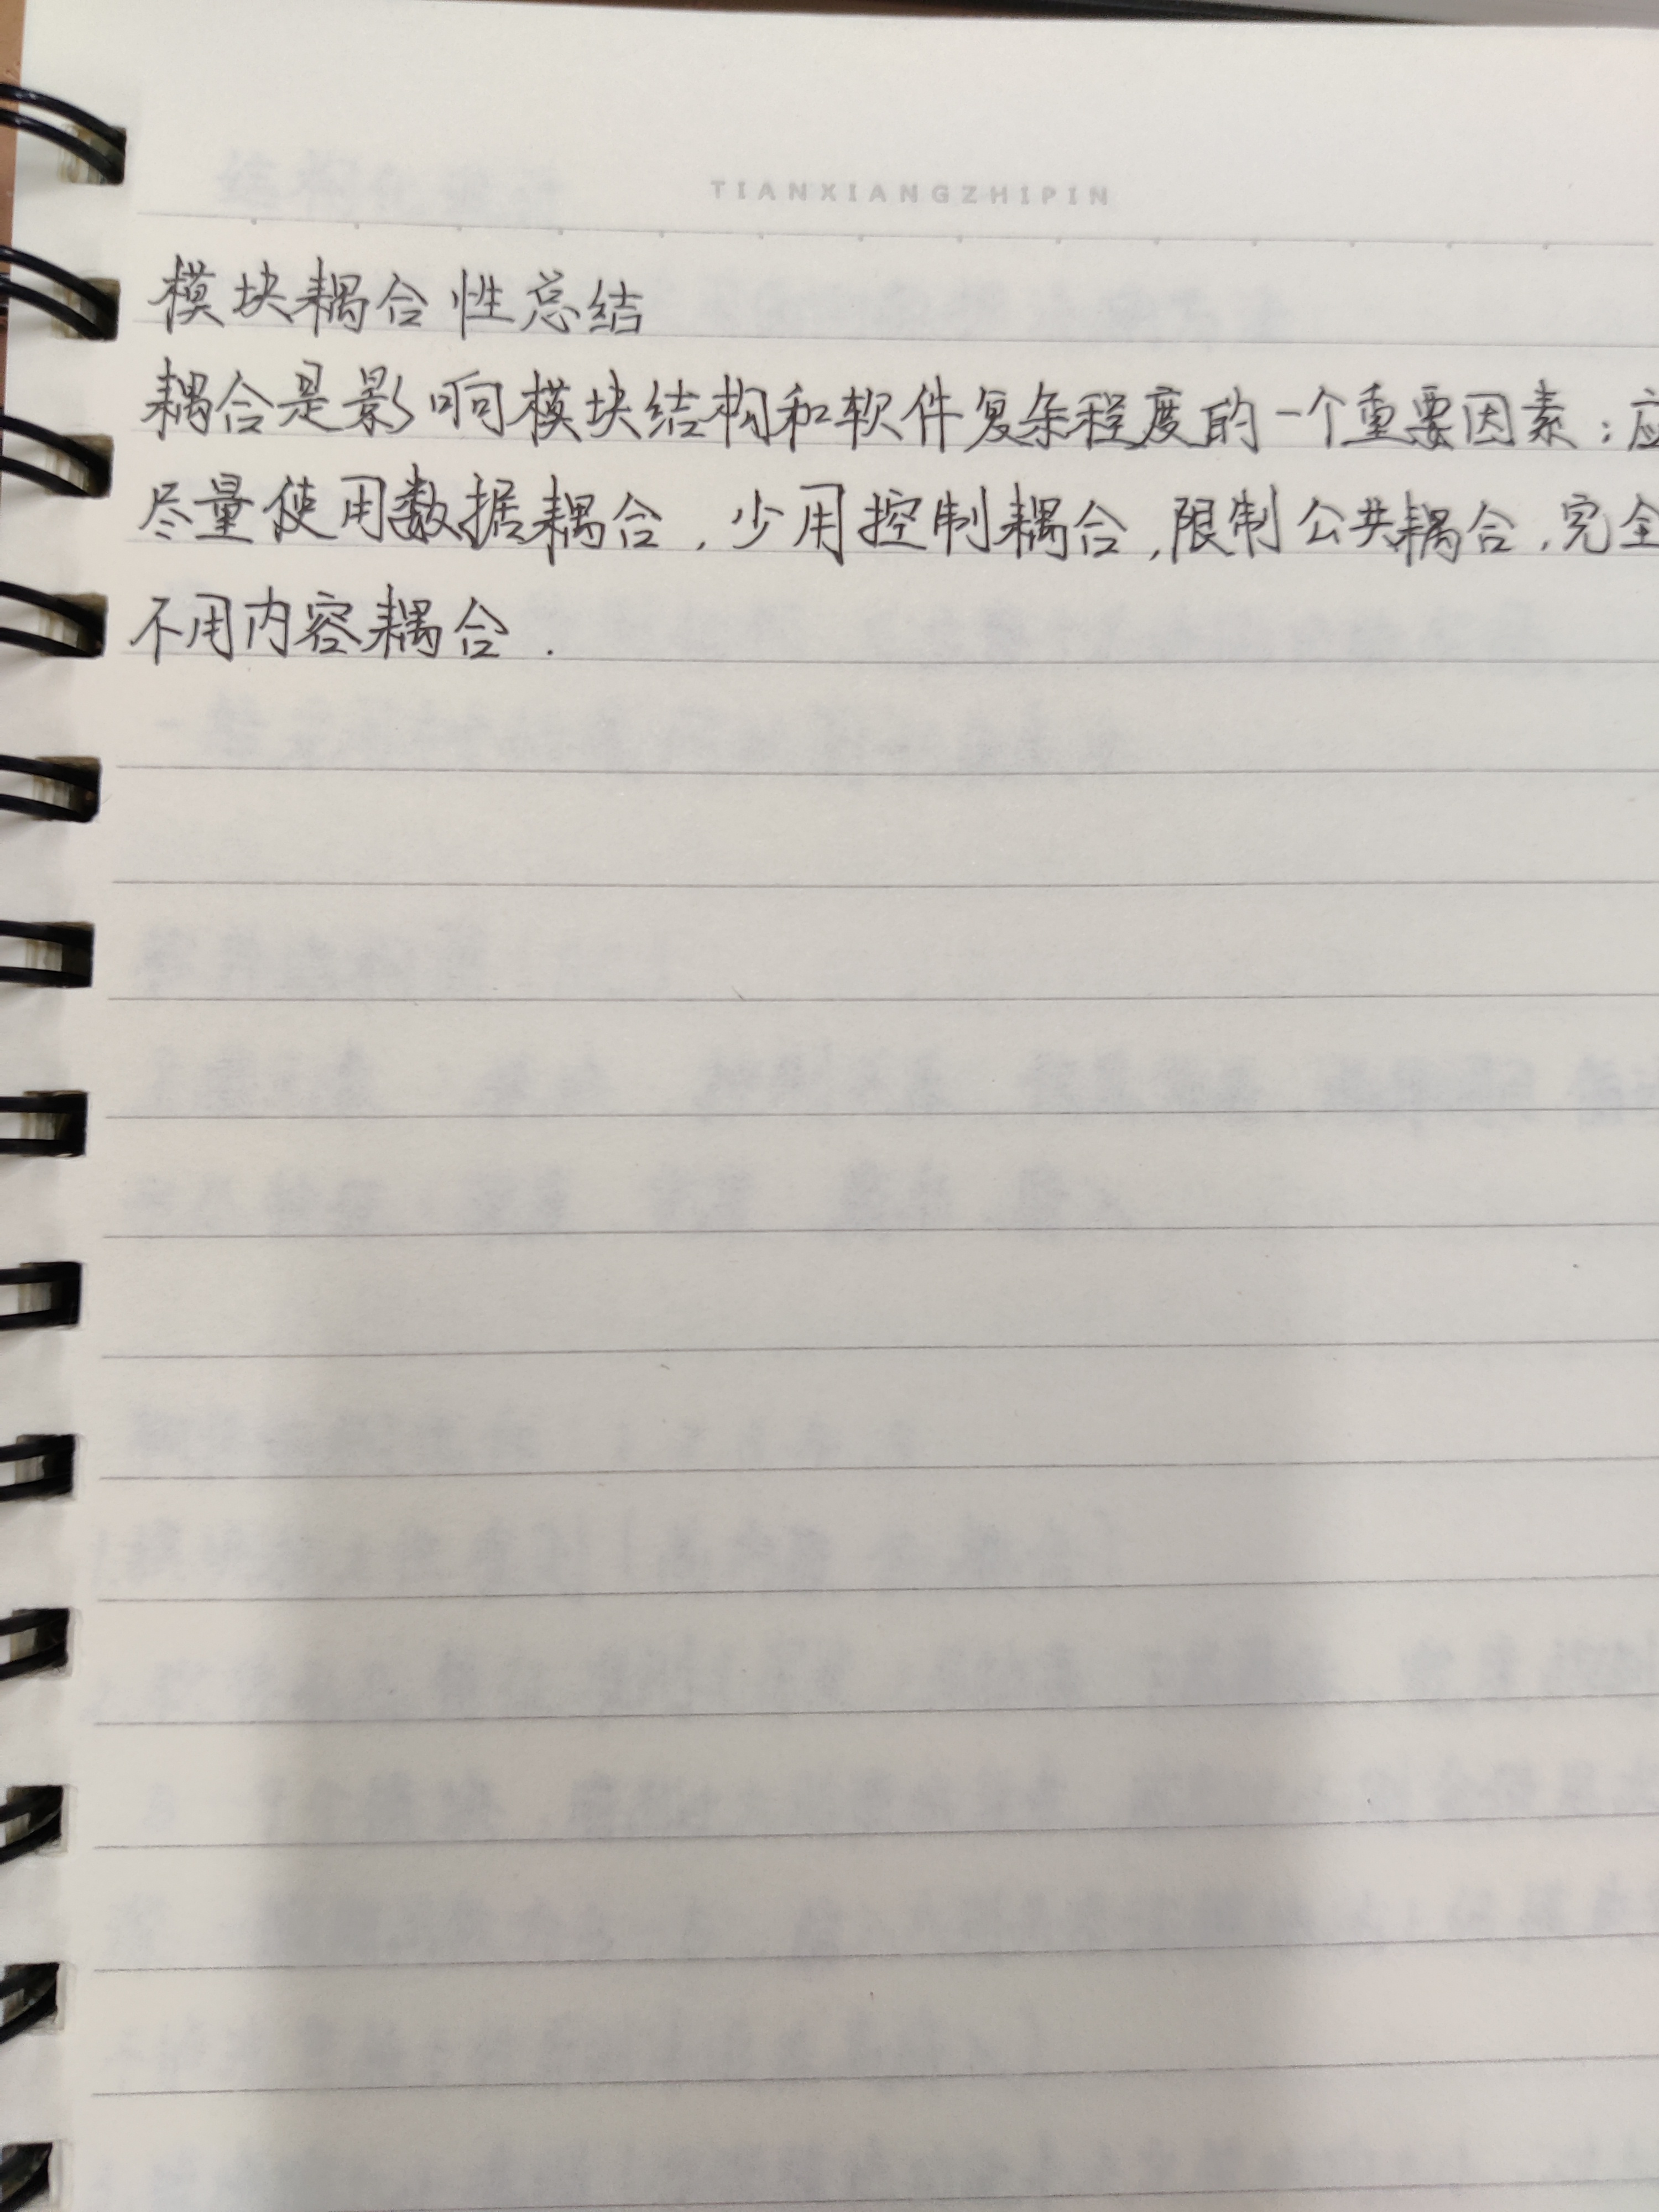 TIANXIANGZHIPIN
模块耦合性总结
耦合是影响模块结构和软件复杂程度的一个重要因素;应
尽量使用数据耦合,少用控制耦合,限制公共耦合,完全
不用内容耦合.